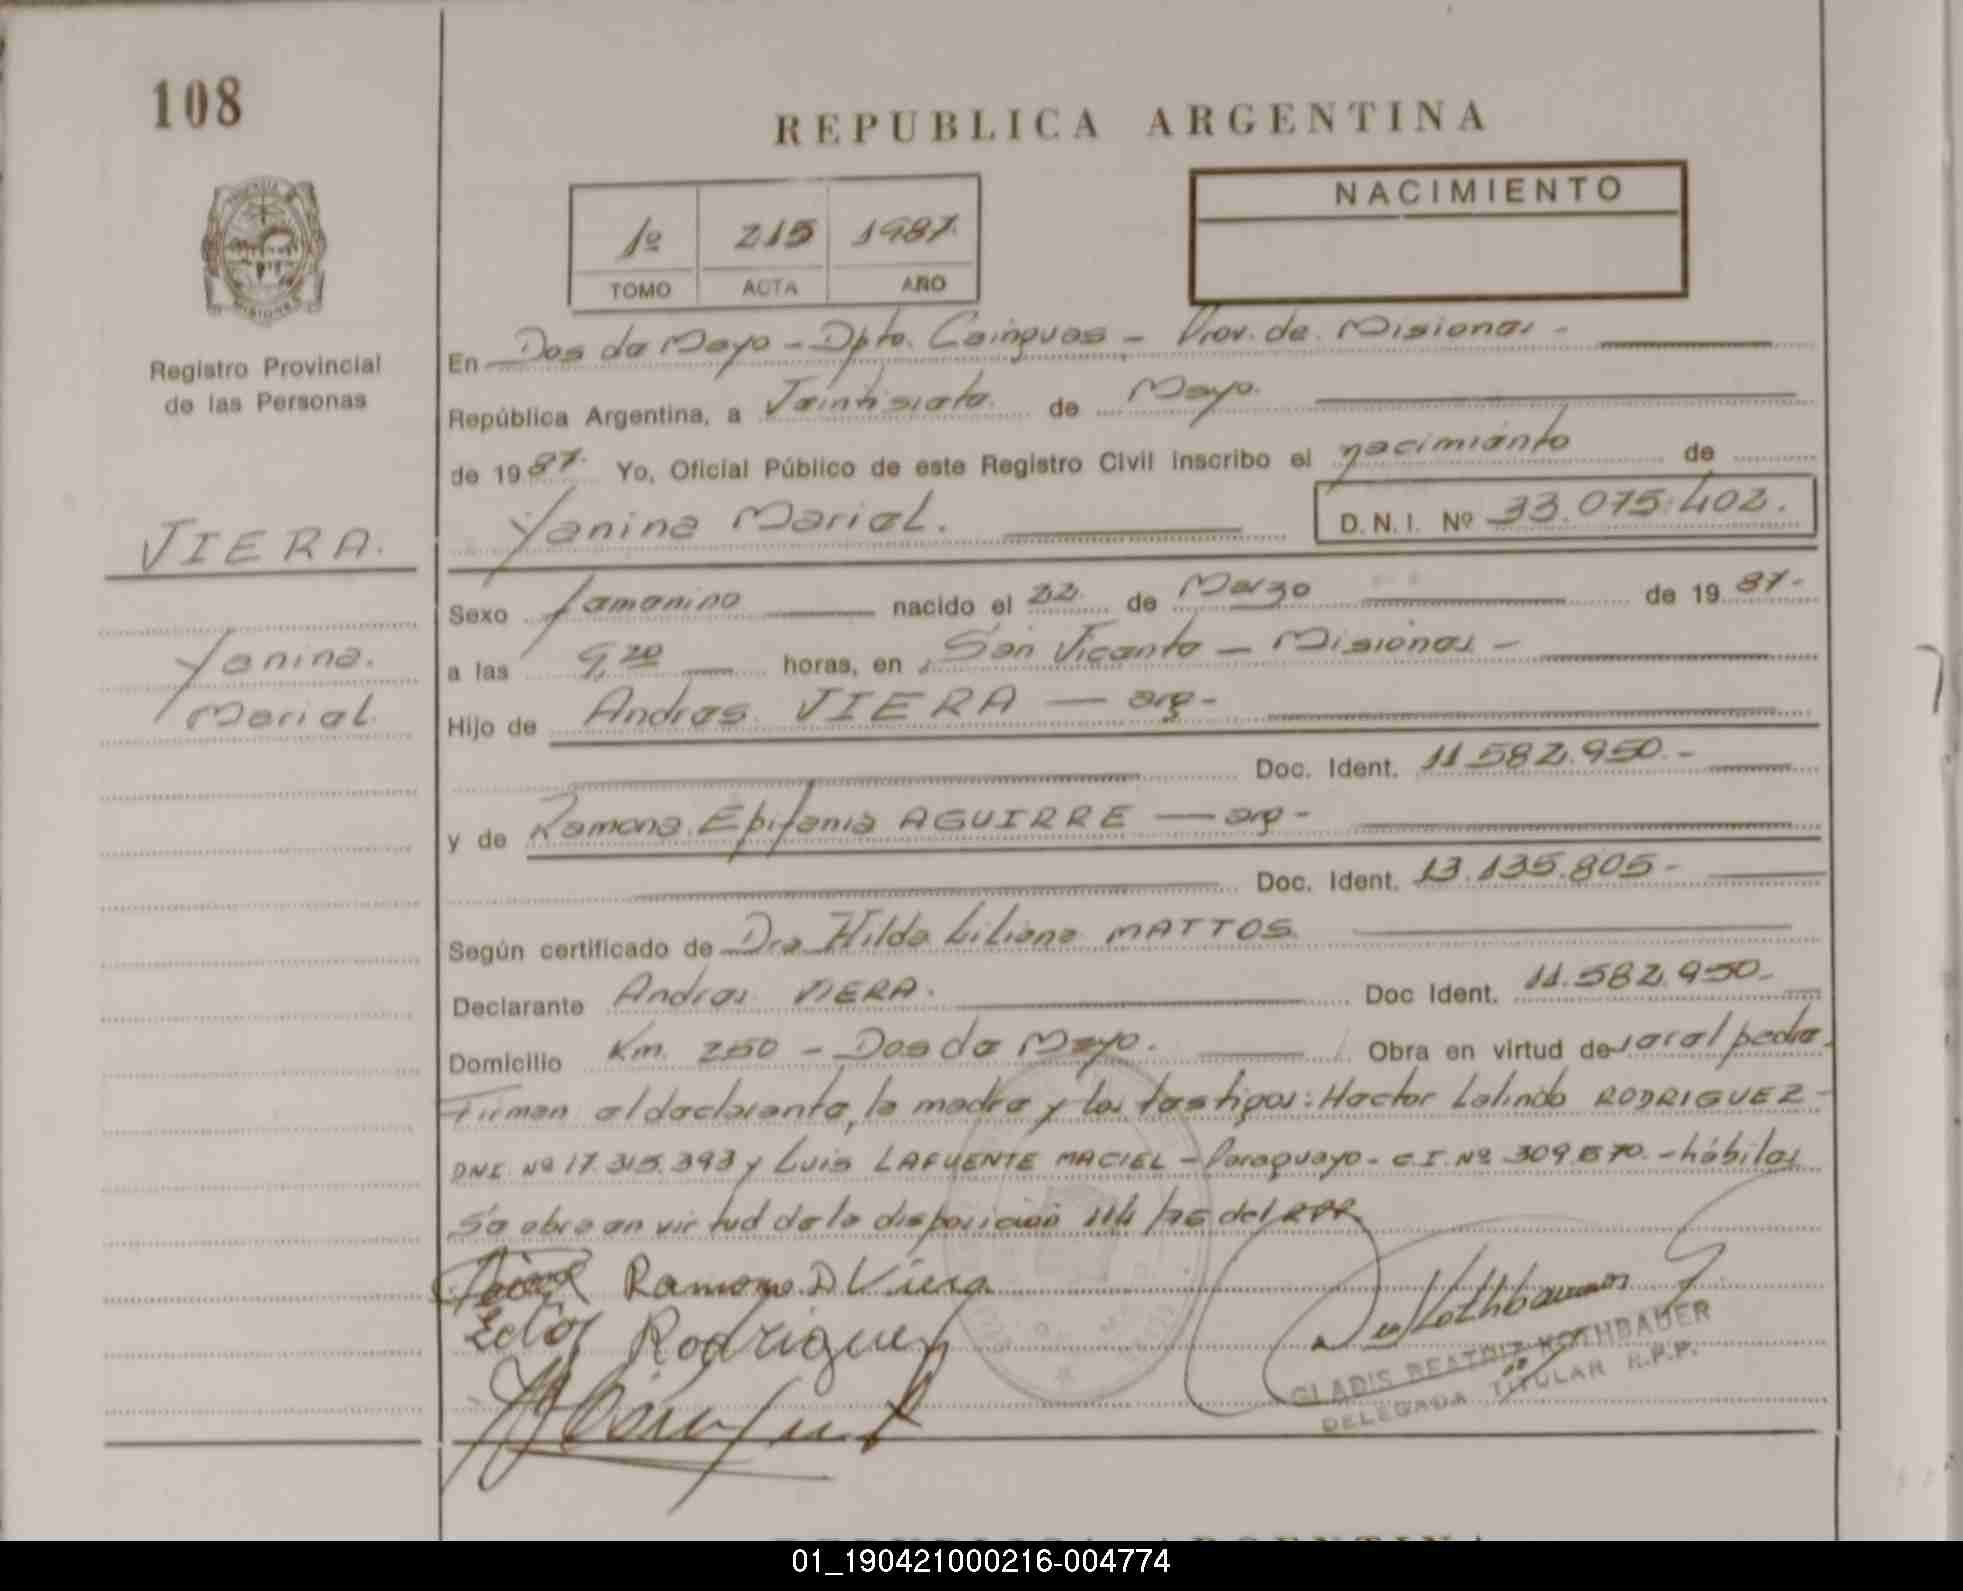 108
REPUBLICA ARGENTINA
NACIMIENTO
1º 215 1987.
TOMO ACTA AÑO
Registro Provincial
de las Personas
En Dos de Mayo - Dpto. Cainguas - Prov. de Misiones -
República Argentina, a Veintisiete de Mayo.
de 1987. Yo, Oficial Público de este Registro Civil inscribo el nacimiento de
Yanina Mariel. D. N. I. Nº 33.075.402.
VIERA.
Yanina.
Mariel.
Sexo femenino nacido el 22 de Marzo de 1987.-
a las 9,20 horas, en San Vicente - Misiones -
Hijo de Andres VIERA - arg-
Doc. Ident. 11.582.950.-
y de Ramona Epifania AGUIRRE - arg -
Doc. Ident. 13.135.805-
Según certificado de Dra Hilda Liliana MATTOS
Declarante Andres VIERA. Doc Ident. 11.582.950-
Domicilio Km. 250 - Dos de Mayo. Obra en virtud de ser el padre.
Firman el declarante, la madre y los testigos: Hector Lelindo RODRIGUEZ -
DNI. Nº 17.315.393 y Luis LAFUENTE MACIEL - Paraguayo - C.I. Nº 309.570. - hábiles
Se obra en virtud de la disposición 114/76 del RPP.
Ramona D Viera
Ector Rodriguez
GLADIS BEATRIZ ROTHBAUER
DELEGADA TITULAR R.P.P.
01_190421000216-004774